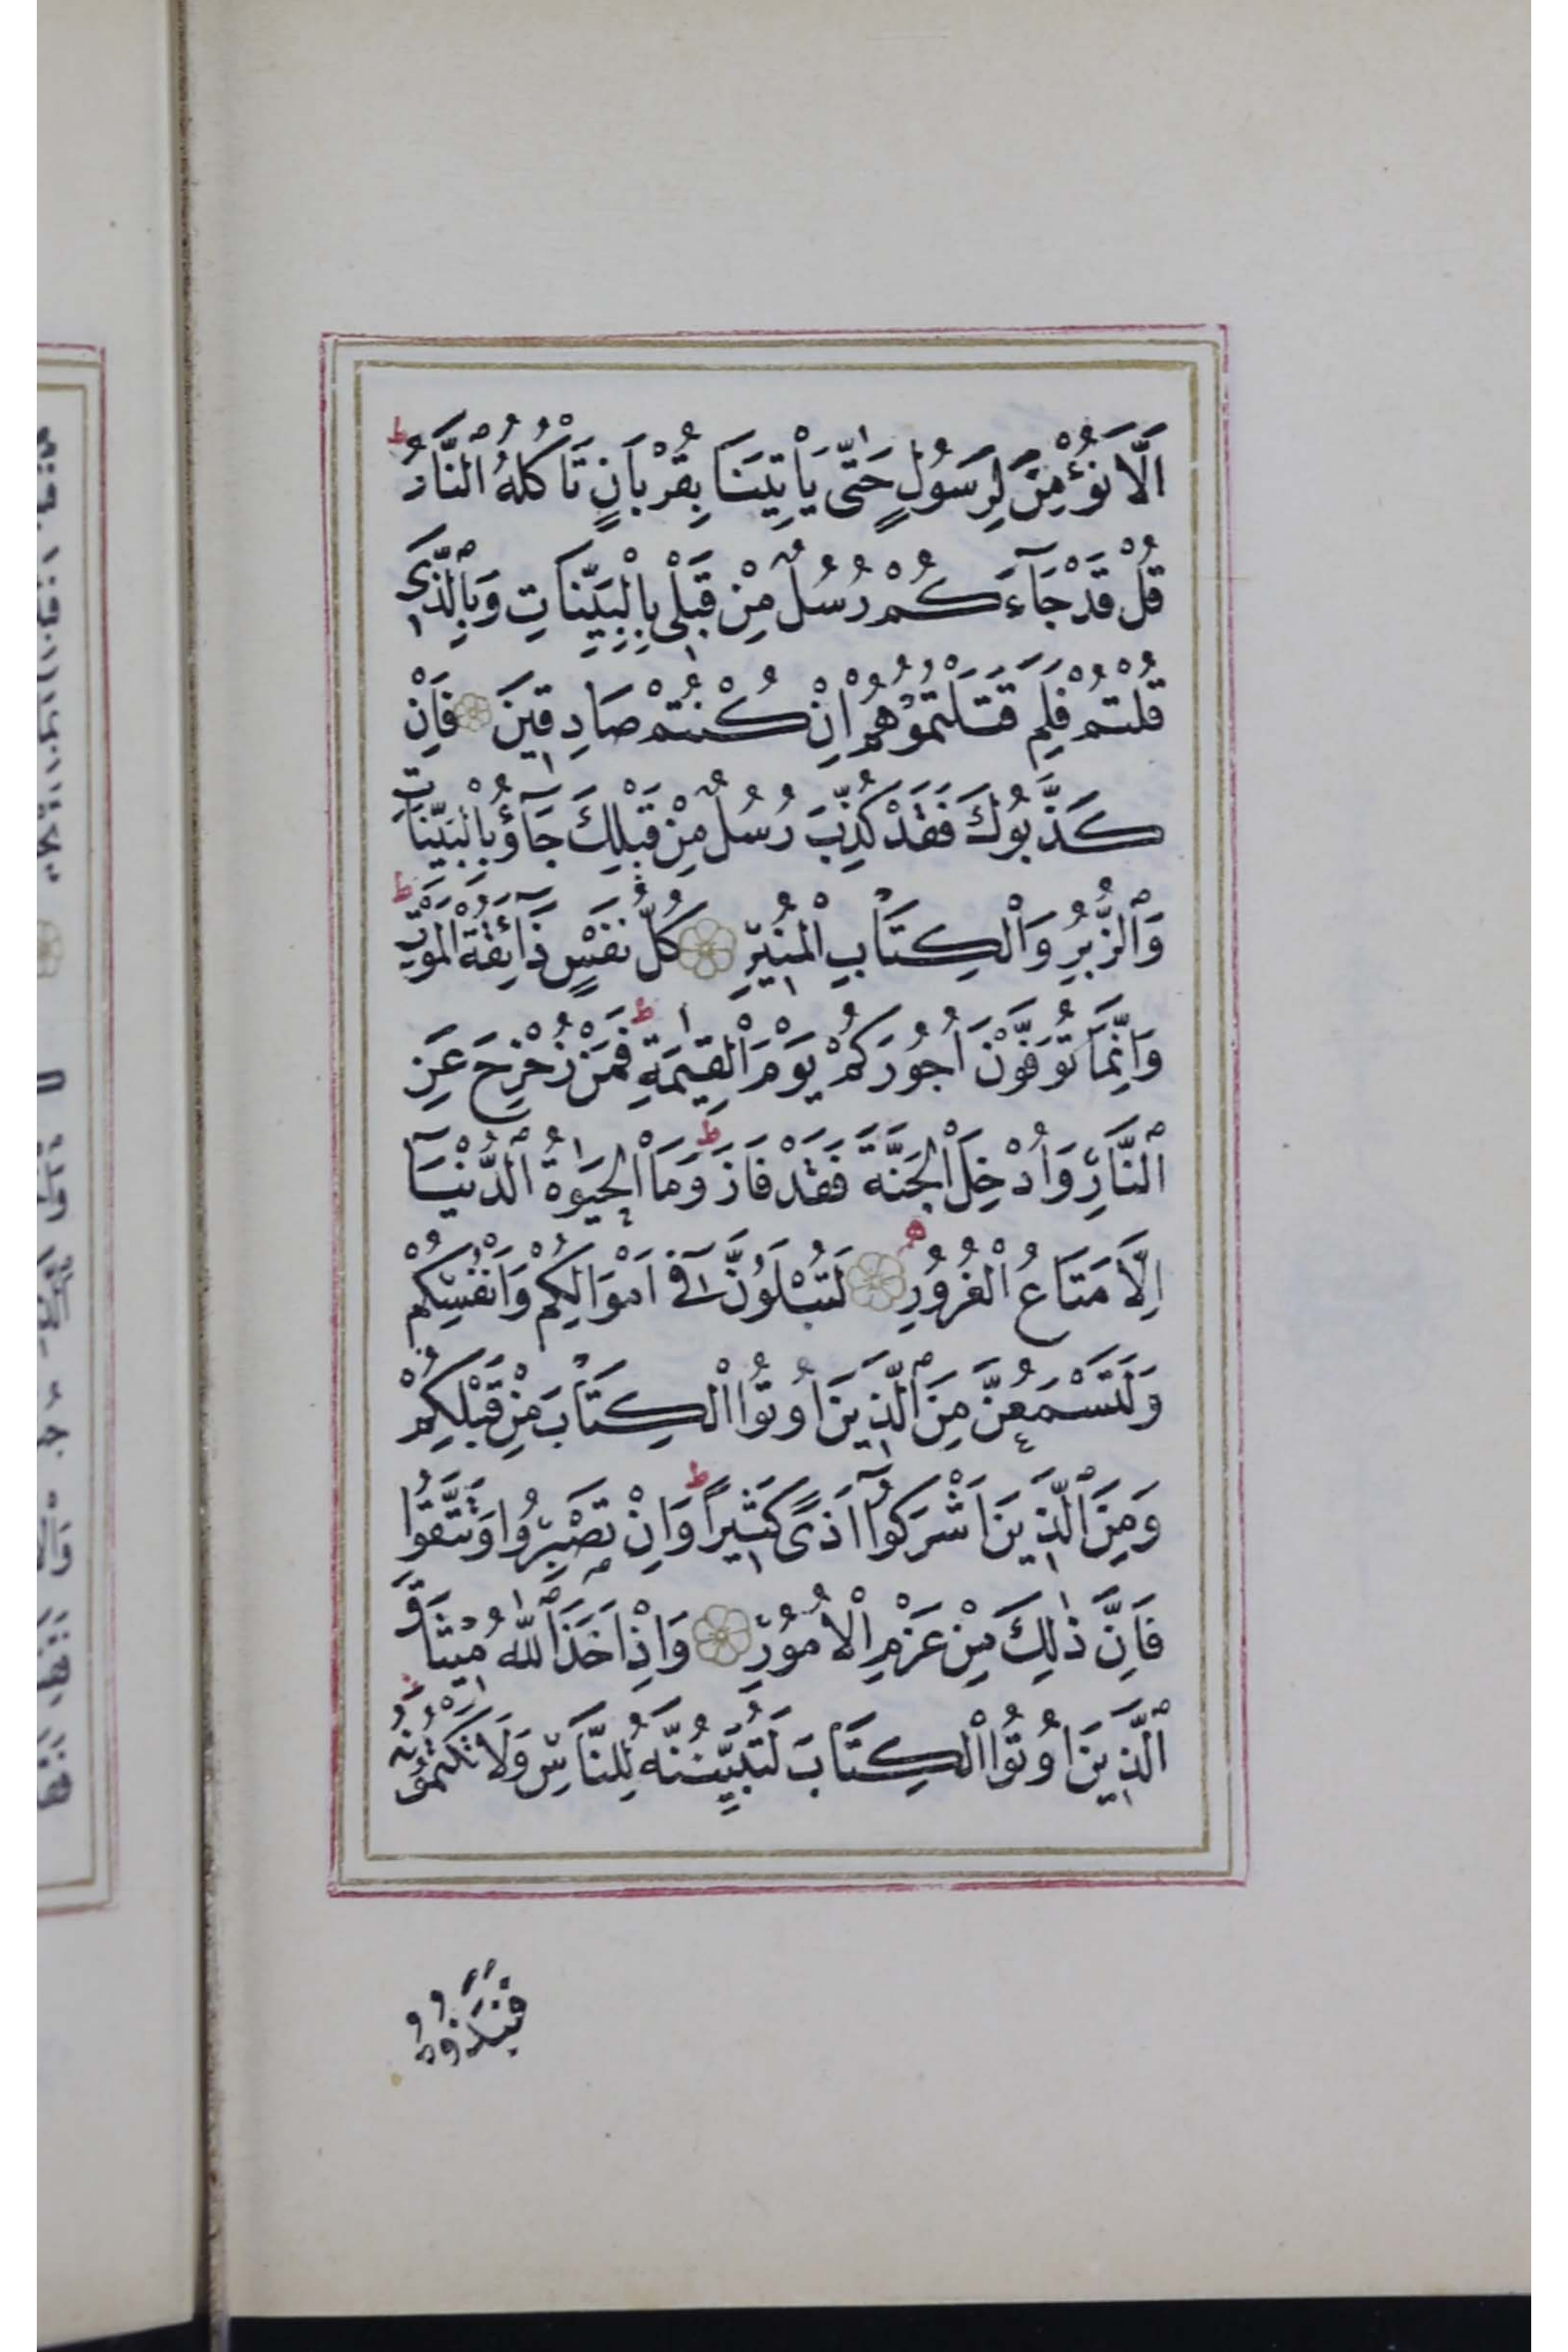 اَلَّا نُؤْمِنَ لِرَسُولٍ حَتّٰى يَأْتِيَنَا بِقُرْبَانٍ تَأْكُلُهُ ٱلنَّارُ ط
قُلْ قَدْ جَآءَكُمْ رُسُلٌ مِنْ قَبْلِى بِالْبَيِّنَاتِ وَبِٱلَّذِى
قُلْتُمْ فَلِمَ قَتَلْتُمُوهُمْ اِنْ كُنْتُمْ صَادِقِينَ فَاِنْ
كَذَّبُوكَ فَقَدْ كُذِّبَ رُسُلٌ مِنْ قَبْلِكَ جَآؤُ بِالْبَيِّنَاتِ
وَٱلزُّبُرِ وَالْكِتَابِ الْمُنِيرِ كُلُّ نَفْسٍ ذَآئِقَةُ الْمَوْتِ ط
وَاِنَّمَا تُوَفَّوْنَ اُجُورَكُمْ يَوْمَ الْقِيٰمَةِ ط فَمَنْ زُحْزِحَ عَنِ
ٱلنَّارِ وَاُدْخِلَ الْجَنَّةَ فَقَدْ فَازَ ط وَمَا الْحَيٰوةُ ٱلدُّنْيَآ
اِلَّا مَتَاعُ الْغُرُورِ ه لَتُبْلَوُنَّ فِىٓ اَمْوَالِكُمْ وَاَنْفُسِكُمْ
وَلَتَسْمَعُنَّ مِنَ ٱلَّذِينَ اُوتُوا الْكِتَابَ مِنْ قَبْلِكُمْ
وَمِنَ ٱلَّذِينَ اَشْرَكُوٓا اَذًى كَثِيرًا ط وَاِنْ تَصْبِرُوا وَتَتَّقُوا
فَاِنَّ ذٰلِكَ مِنْ عَزْمِ الْاُمُورِ وَاِذْ اَخَذَ ٱللّٰهُ مِيثَاقَ
ٱلَّذِينَ اُوتُوا الْكِتَابَ لَتُبَيِّنُنَّهُ لِلنَّاسِ وَلَا تَكْتُمُونَهُ
فَنَبَذُوهُ